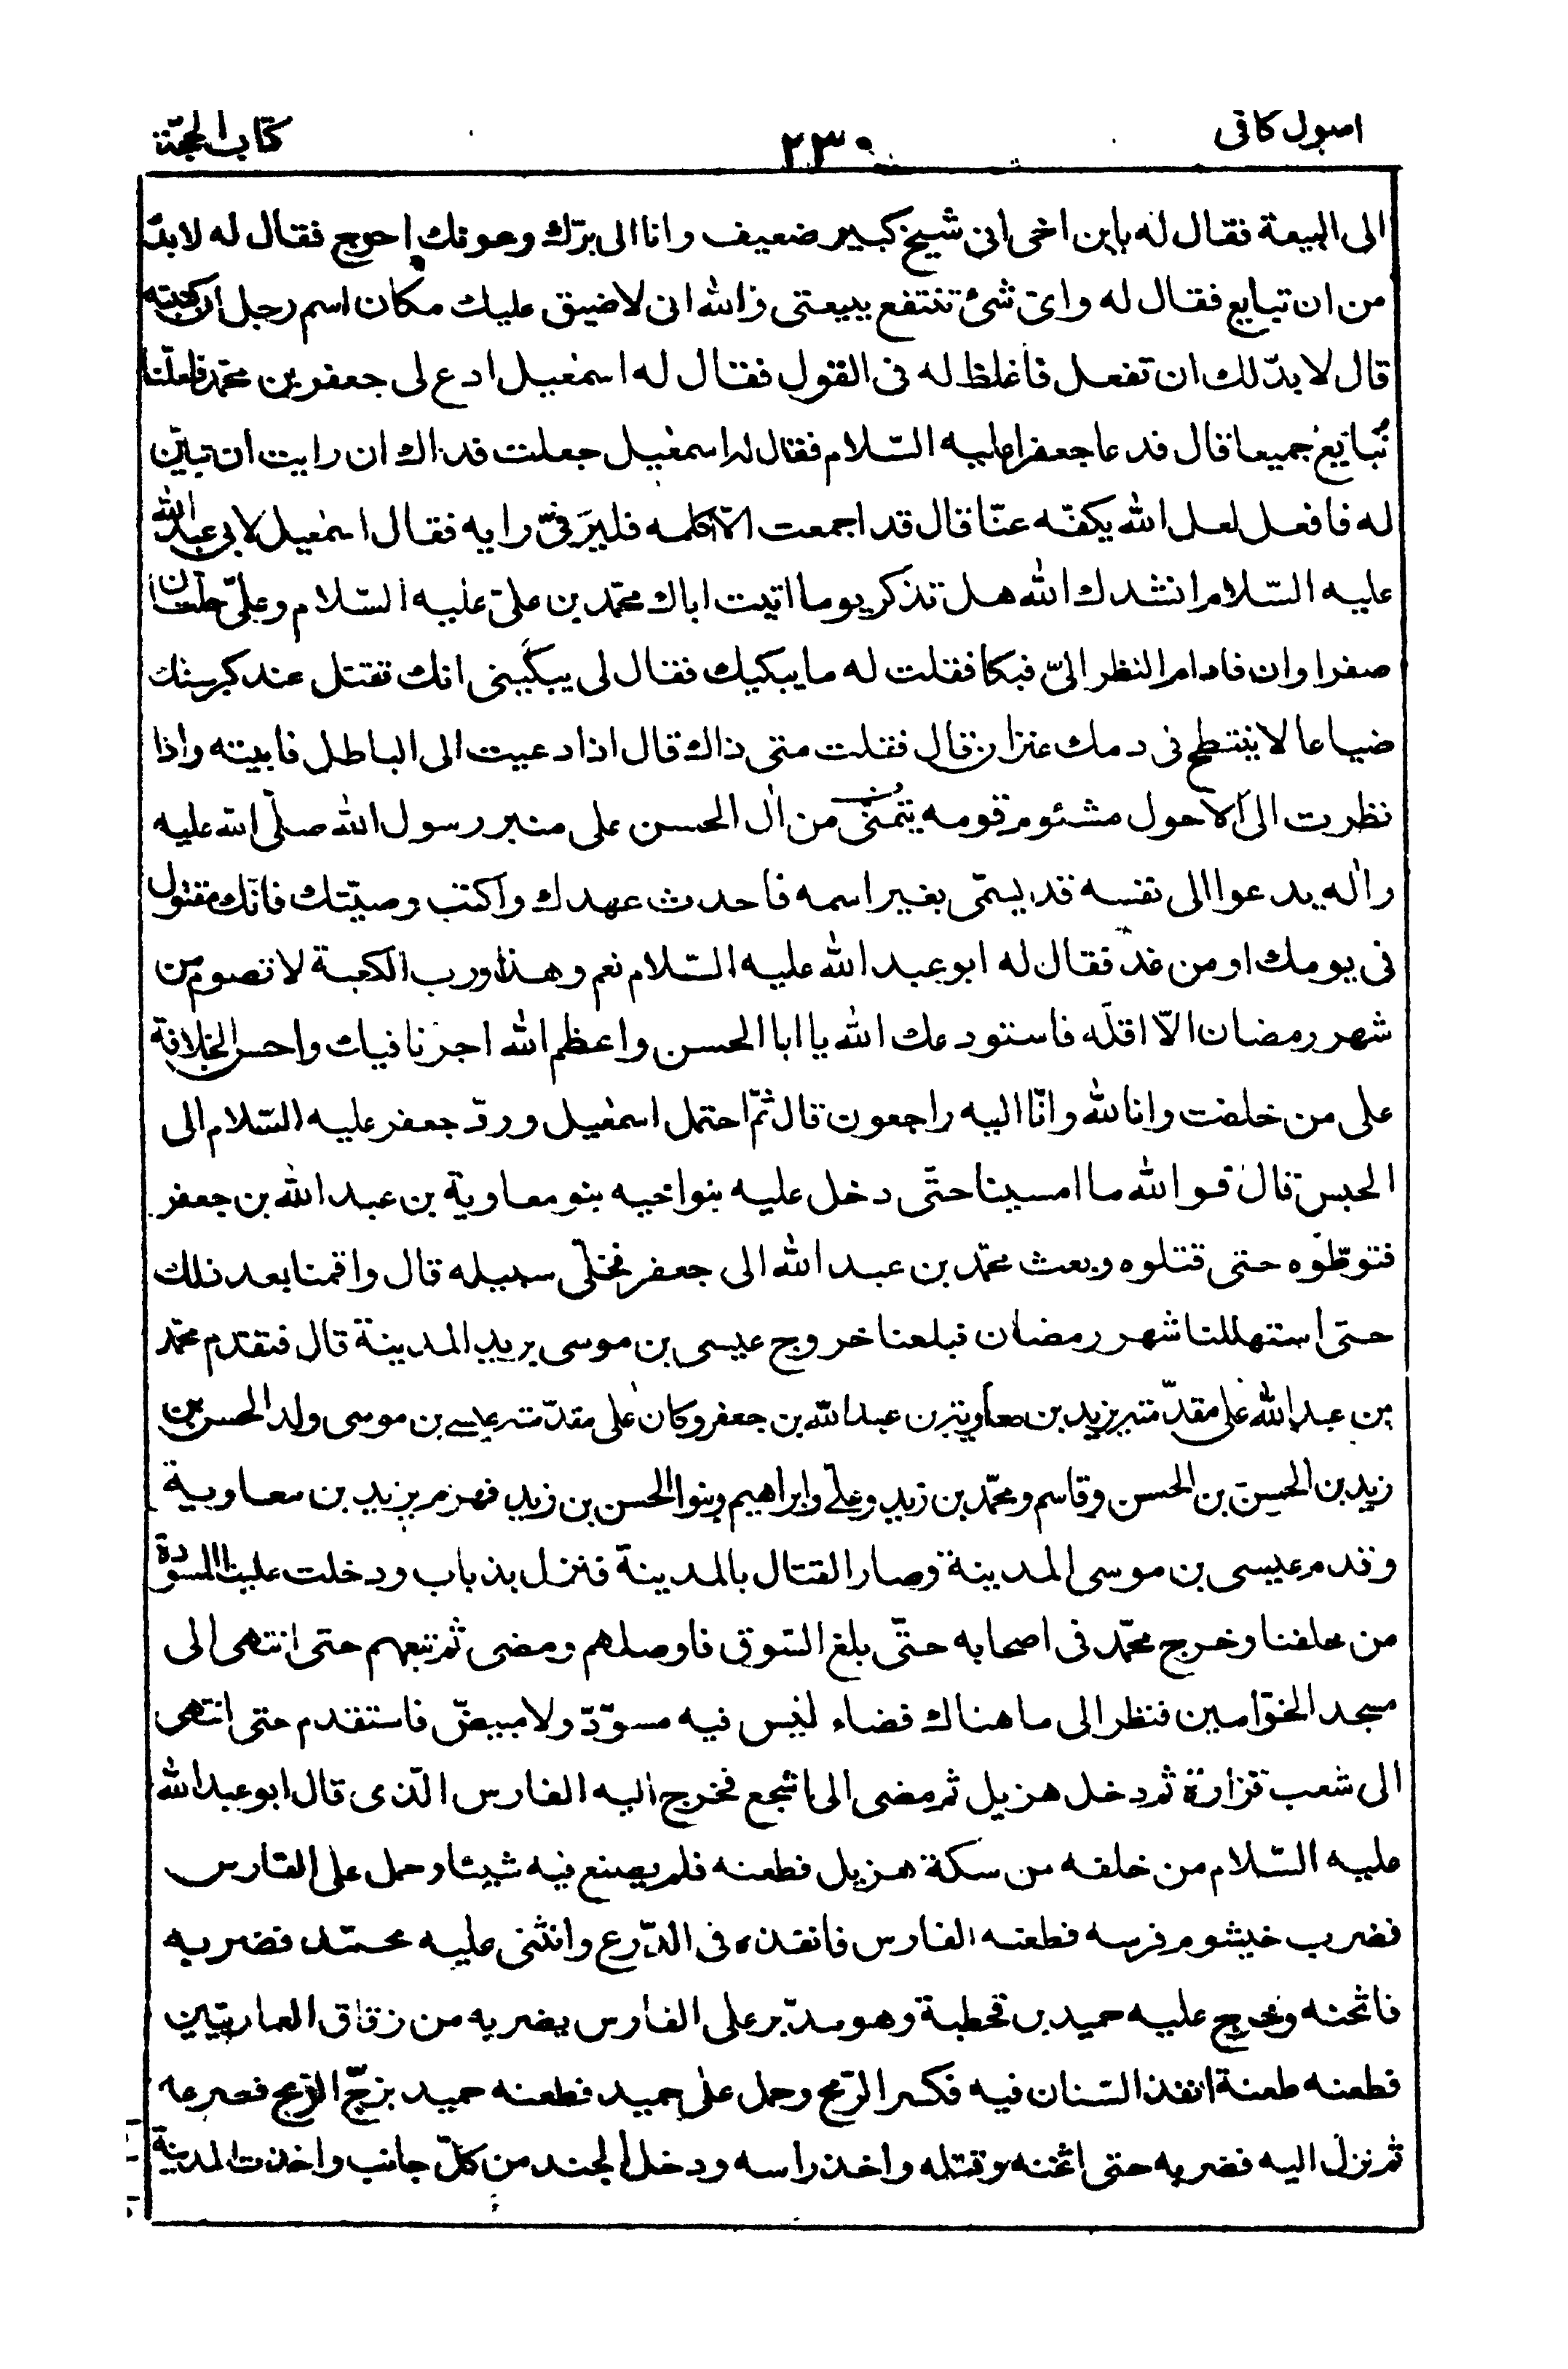 اصول كافى
٢٣٠
كتاب الحجّة
الى البيعة فقال له يا بن اخى انى شيخ كبير ضعيف وانا الى برّك وعونك احوج فقال له لا بدّ
من ان تبايع فقال له واىّ شئ تنتفع ببيعتى والله انى لاضيق عليك مكان اسم رجل ان كتبته
قال لا بدّ لك ان تفعل فاغلظ له فى القول فقال له اسمٰعيل ادع لى جعفر بن محمّد فلعلّنا
نُبايع جميعا قال فدعا جعفرا عليه السّلام فقال له اسمٰعيل جعلت فداك ان رايت ان تبيّن
له فافعل لعل الله يكفّه عنّا قال قد اجمعت الّا اكلمه فليرَ فىّ رايه فقال اسمٰعيل لابى عبد الله
عليه السّلام انشدك الله هل تذكر يوما اتيت اباك محمّد بن علىّ عليه السّلام وعلىّ حلّتان
صفراوان فادام النظر الىّ فبكا فقلت له ما يبكيك فقال لى يبكينى انك تقتل عند كبر سنك
ضياعا لا ينتطح فى دمك عنزان قال فقلت متى ذاك قال اذا دعيت الى الباطل فابيته واذا
نظرت الى الاحول مشئوم قومه يتمنّى من اٰل الحسن على منبر رسول الله صلّى الله عليه
واٰله يدعوا الى نفسه قد يسمّى بغير اسمه فاحدث عهدك واكتب وصيّتك فانّك مقتول
فى يومك او من غد فقال له ابو عبد الله عليه السّلام نعم وهذا ورب الكعبة لا تصوم من
شهر رمضان الّا اقلّه فاستودعك الله يا ابا الحسن واعظم الله اجرنا فيك واحسن الخلافة
على من خلفت وانا لله وانّا اليه راجعون قال ثمّ احتمل اسمٰعيل وردّ جعفر عليه السّلام الى
الحبس قال فو الله ما امسينا حتّى دخل عليه بنوا اخيه بنو معاوية بن عبد الله بن جعفر
فتوطّؤه حتى قتلوه وبعث محمّد بن عبد الله الى جعفر فخلّى سبيله قال واقمنا بعد ذلك
حتى استهللنا شهر رمضان فبلغنا خروج عيسى بن موسى يريد المدينة قال فتقدم محمّد
بن عبد الله على مقدّمته يزيد بن معاوية بن عبد الله بن جعفر وكان على مقدّمته عيسى بن موسى ولد الحسن بن
زيد بن الحسن بن الحسن وقاسم ومحمّد بن زيد وعلى وابراهيم وبنوا الحسن بن زيد فهزم يزيد بن معاوية
وقدم عيسى بن موسى المدينة وصار القتال بالمدينة فنزل بذباب ودخلت علينا المسوّدة
من خلفنا وخرج محمّد فى اصحابه حتّى بلغ السّوق فاوصلهم ومضى ثم تبعهم حتى انتهى الى
مسجد الخوّامين فنظر الى ما هناك فضاء ليس فيه مسوّدّ ولا مبيضّ فاستقدم حتى انتهى
الى شعب فزارة ثم دخل هزيل ثم مضى الى اشجع فخرج اليه الفارس الّذى قال ابو عبد الله
عليه السّلام من خلفه من سكة هزيل فطعنه فلم يصنع فيه شيئا وحمل على الفارس
فضرب خيشوم فرسه فطعنه الفارس فانفذه فى الدّرع وانثنى عليه محمّد فضربه
فاثخنه وخرج عليه حميد بن قحطبة وهو مدبّر على الفارس يضربه من زقاق العماريّين
فطعنه طعنة انفذ السّنان فيه فكسر الرّمح وحمل على حميد فطعنه حميد بزجّ الرّمح فصرعه
ثم نزل اليه فضربه حتى اثخنه وقتله واخذ راسه ودخل الجند من كلّ جانب واخذت المدينة